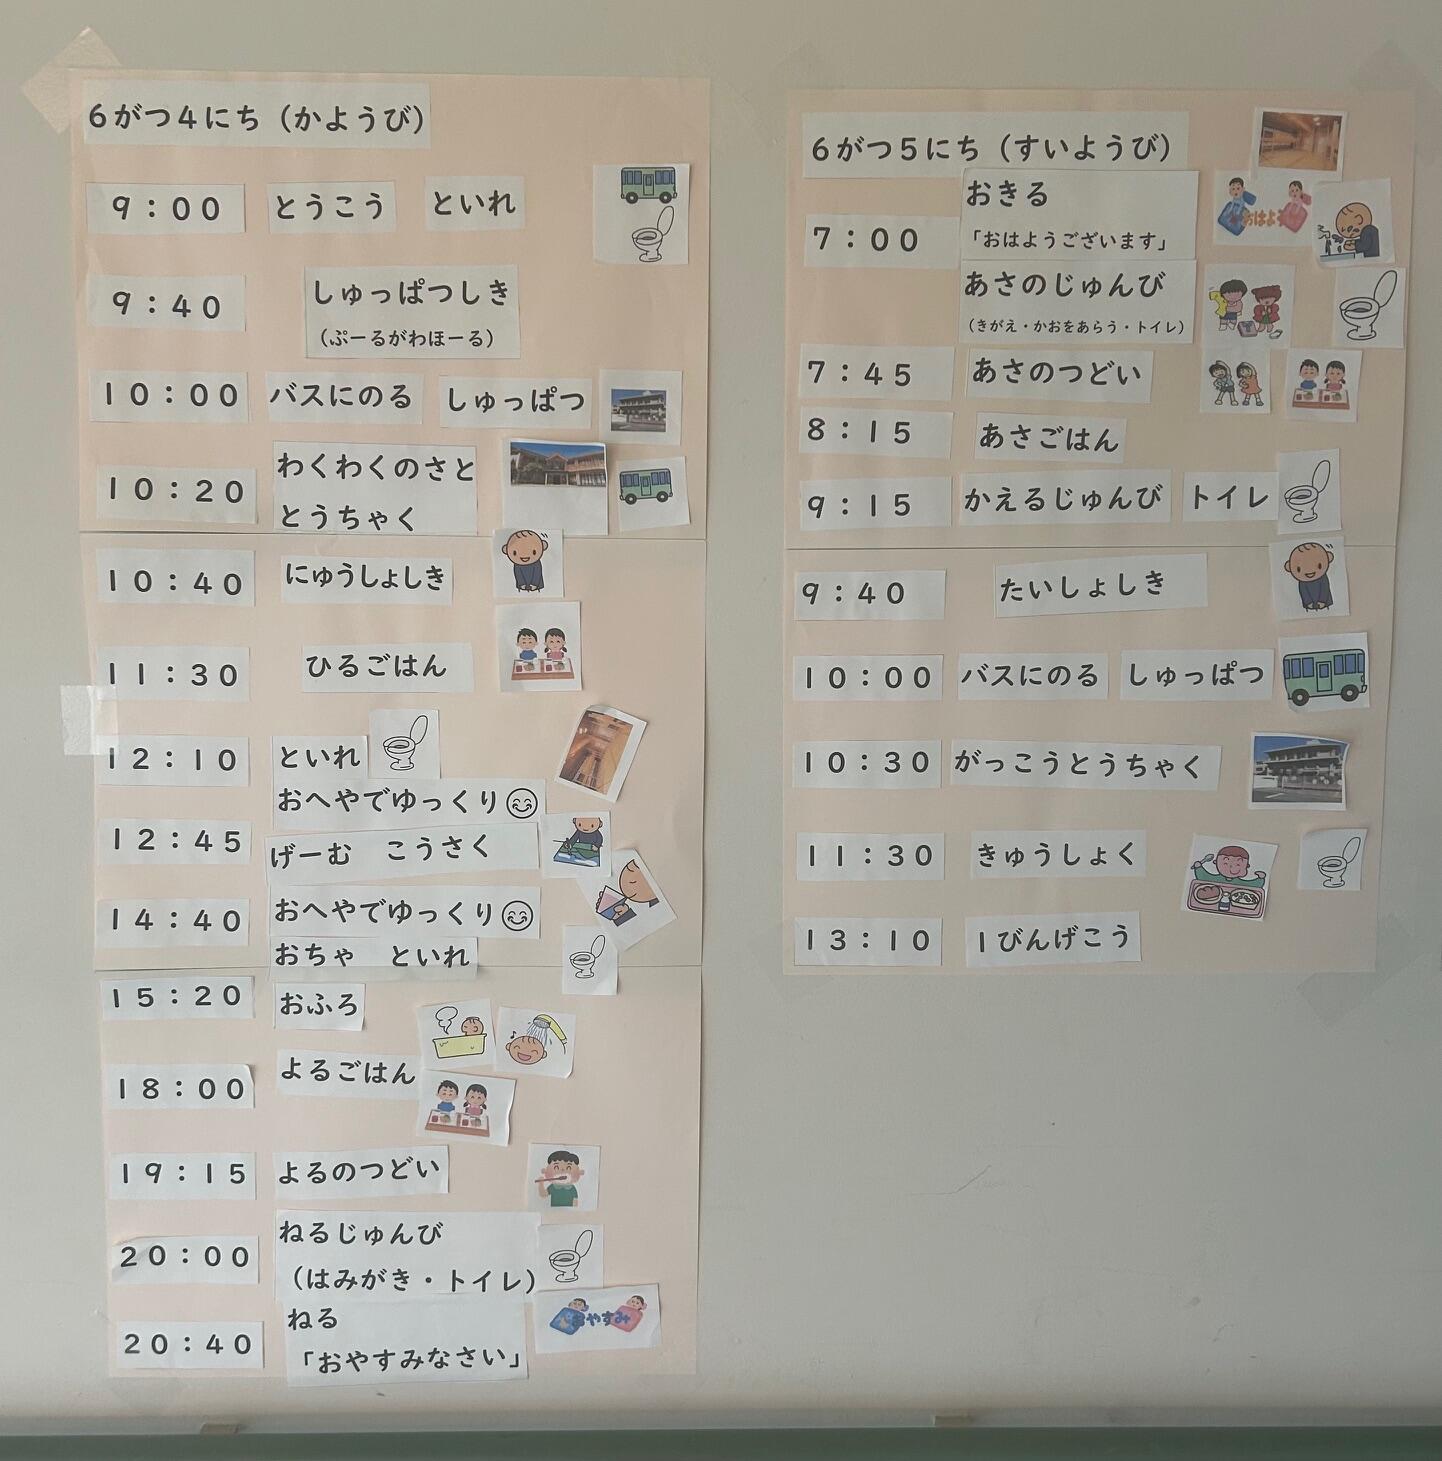 6がつ4にち（かようび）
9：00 とうこう といれ
9：40 しゅっぱつしき
（ぷーるがわほーる）
10：00 バスにのる しゅっぱつ
10：20 わくわくのさと
とうちゃく
10：40 にゅうしょしき
11：30 ひるごはん
12：10 といれ
おへやでゆっくり😊
12：45 げーむ こうさく
14：40 おへやでゆっくり😊
おちゃ といれ
15：20 おふろ
18：00 よるごはん
19：15 よるのつどい
20：00 ねるじゅんび
（はみがき・トイレ）
20：40 ねる
「おやすみなさい」
おやすみ
6がつ5にち（すいようび）
7：00 おきる
「おはようございます」
おはよう
あさのじゅんび
（きがえ・かおをあらう・トイレ）
7：45 あさのつどい
8：15 あさごはん
9：15 かえるじゅんび トイレ
9：40 たいしょしき
10：00 バスにのる しゅっぱつ
10：30 がっこうとうちゃく
11：30 きゅうしょく
13：10 1びんげこう